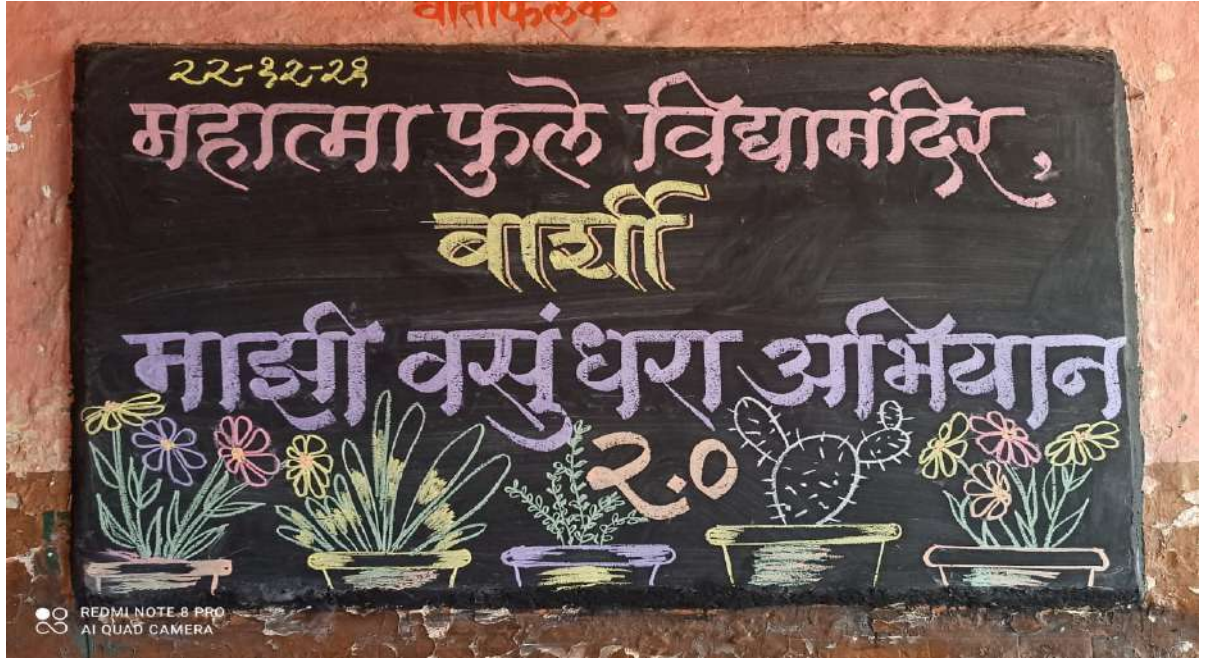 वार्ताफलक
२२-१२-२१
महात्मा फुले विद्यामंदिर,
बार्शी
माझी वसुंधरा अभियान
२.०
REDMI NOTE 8 PRO
AI QUAD CAMERA